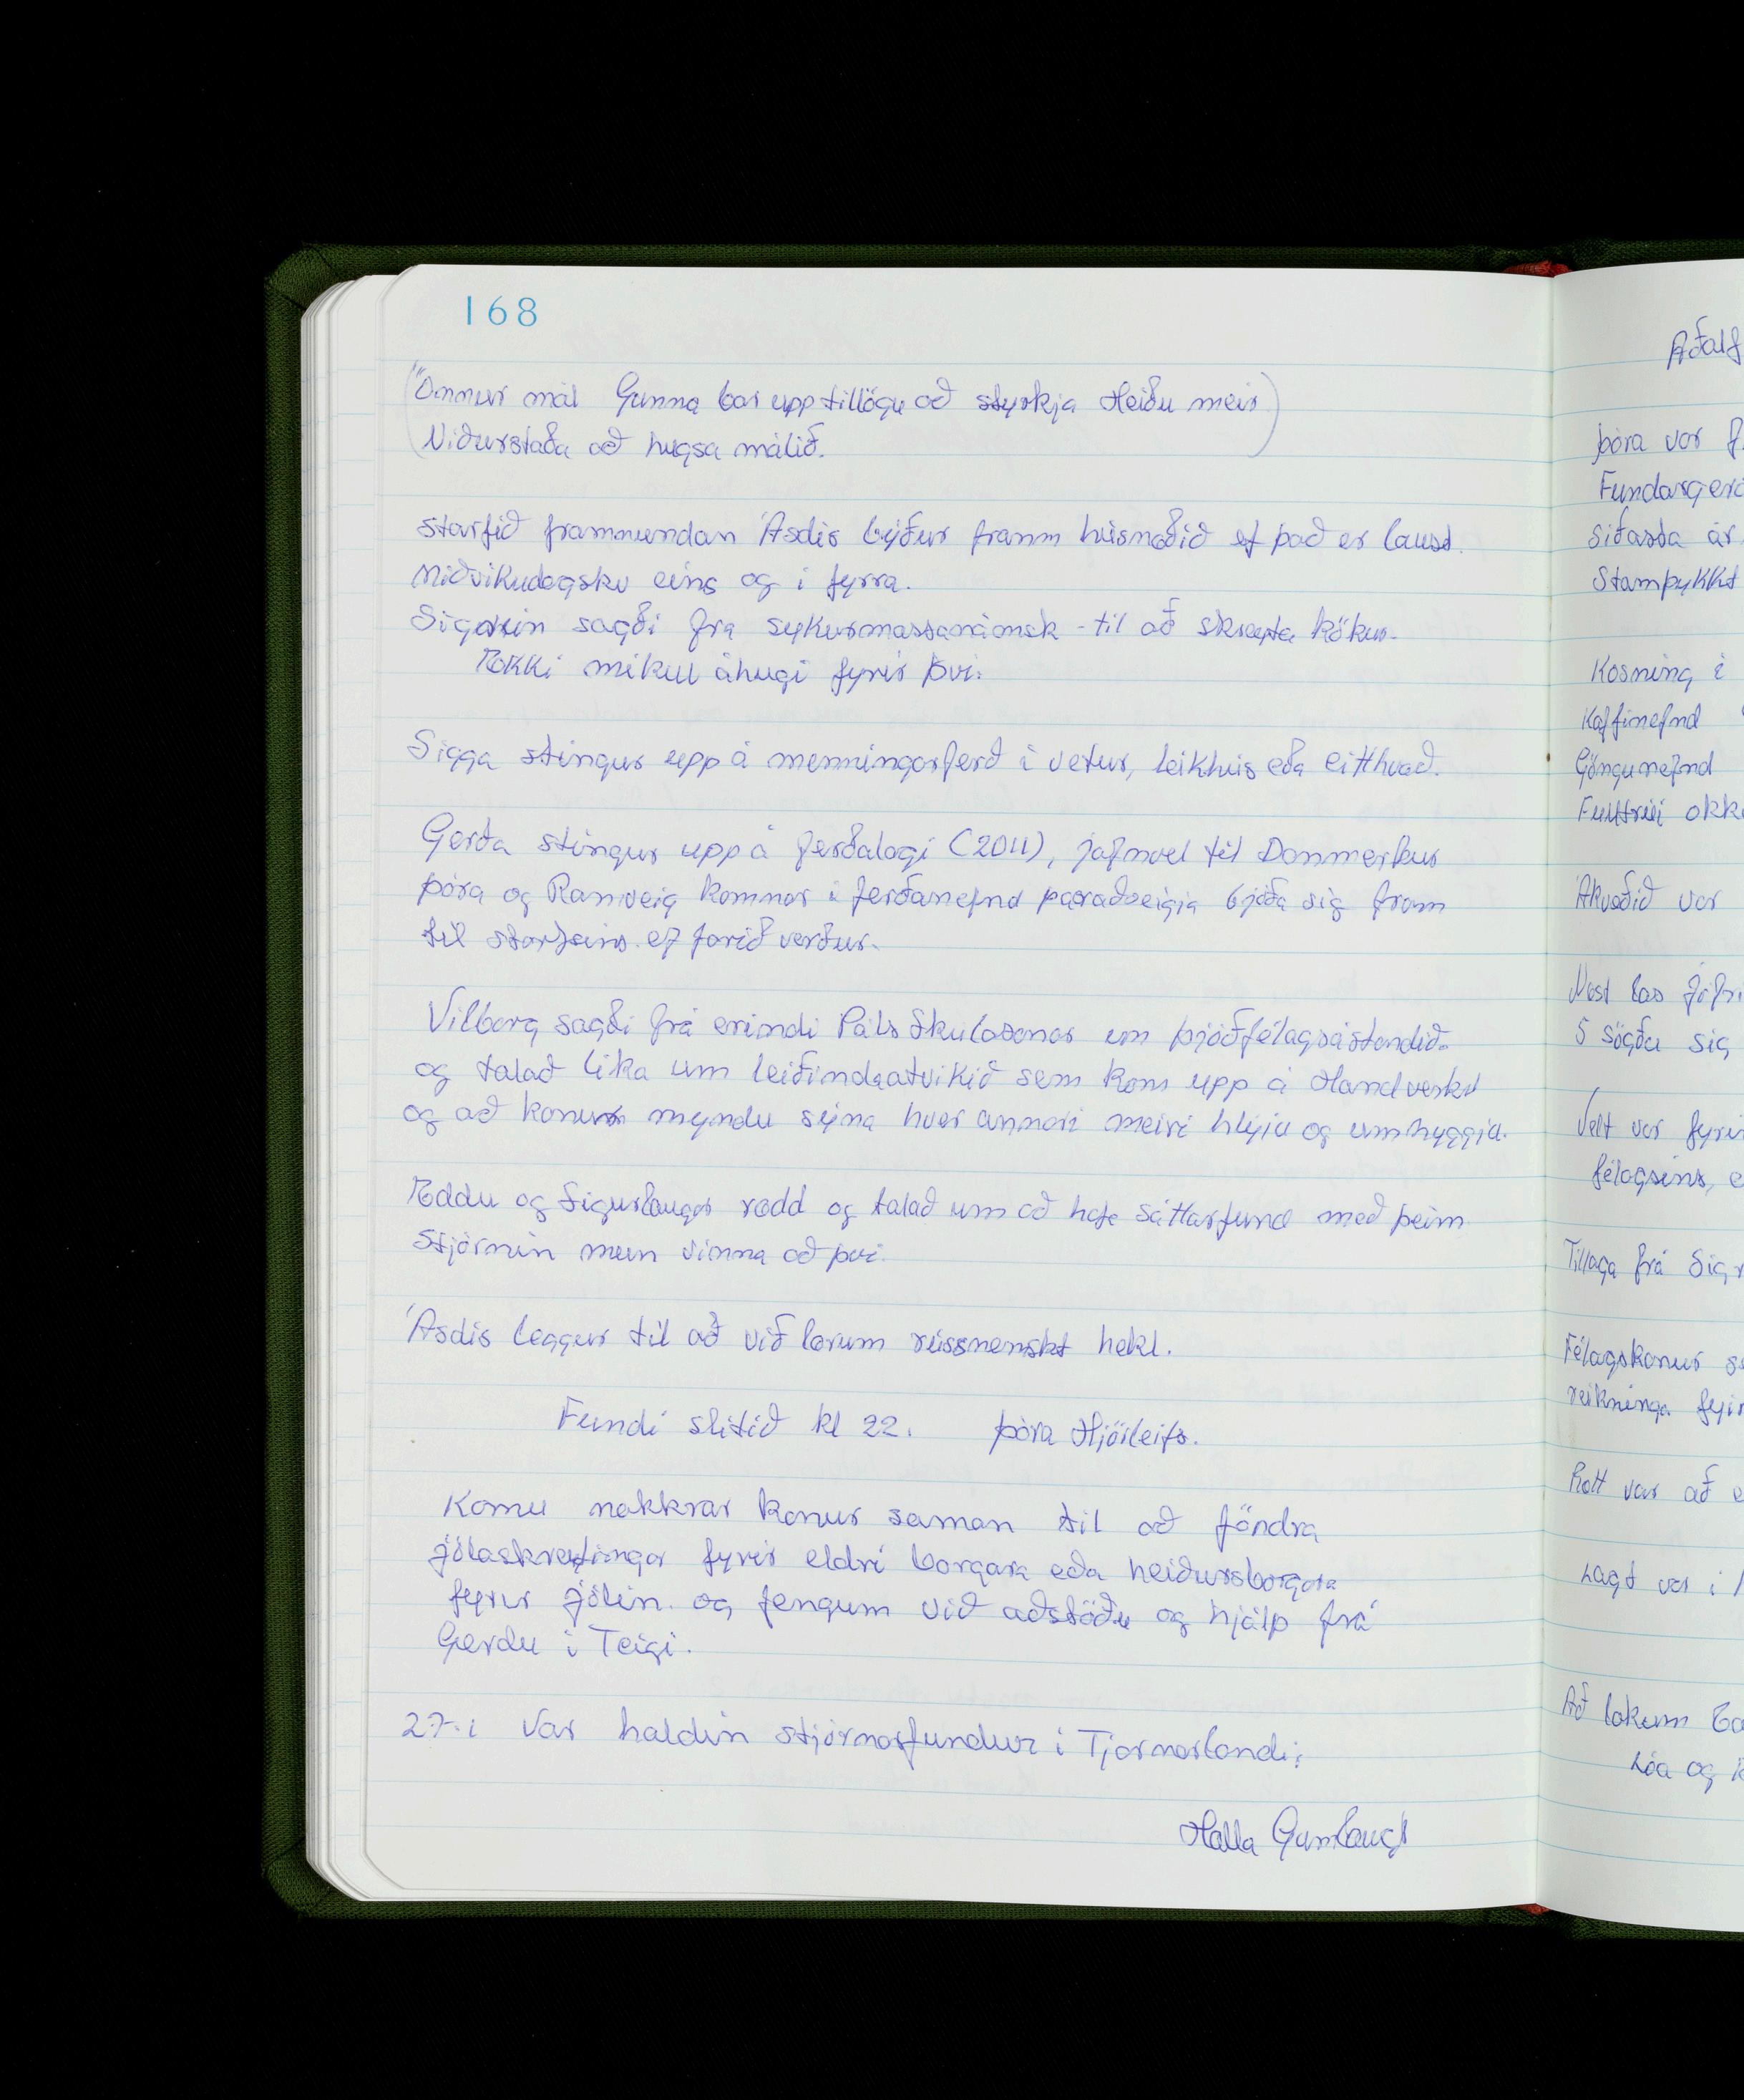 168
(Önnur mál Gunna bar upp tillögu að styrkja Heiðu meir)
Niðurstaða að hugsa málið.
Starfið frammundan Ásdís býður framm húsnæðið ef það er laust.
Miðvikudagskv eins og í fyrra.
Sigrún sagði frá sykurmassanámsk - til að skreyta kökur.
Ekki mikill áhugi fyrir því.
Sigga stingur upp á menningarferð í vetur, leikhús eða eitthvað.
Gerða stingur upp á ferðalagi (2011), jafnvel til Danmerkur
Þóra og Rannveig komnar í ferðanefnd bjóða sig fram
til starfsins ef farið verður.
Vilborg sagði frá erindi Páls Skúlasonar um þjóðfélagsástandið.
og talað líka um leiðindaatvikið sem kom upp á Handverks
og að konur myndu sýna hver annari meiri hlýju og umhyggju.
Eddu og Sigurlaugar rædd og talað um að hafa sáttarfund með þeim
Stjórnin mun vinna að því.
Ásdís leggur til að við lærum rússneskt hekl.
Fundi slitið kl 22. Þóra Hjörleifs.
Komu nokkrar konur saman til að föndra
jólaskreytingar fyrir eldri borgara eða heiðursborgara
fyrir jólin og fengum við aðstöðu og hjálp frá
Gerdu í Teigi.
27. i var haldin stjórnarfundur í Tjarnarlandi.
Halla Gunnlaugs
Aðalf
Þóra var f
Fundargerð
síðasta ár
Samþykkt
Kosning í
Kaffinefnd
Göngunefnd
Fulltrúi okk
Ákveðið var
Næst las Jófrí
5 sögðu sig
Velt var fyrir
félagsins,
Tillaga frá Sigr
Félagskonur
reikninga fyrir
Rætt var að e
Lagt var í
Að lokum
Lóa og